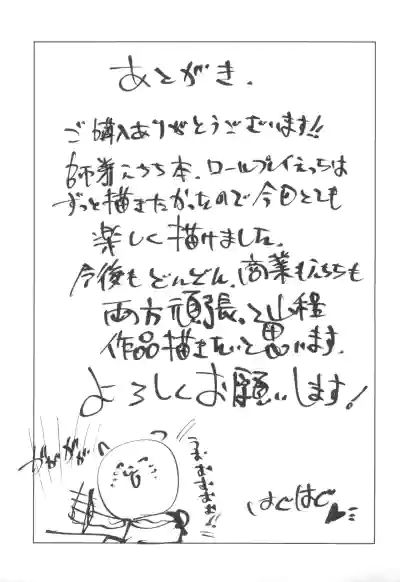 あとがき.
ご購入ありがとうございます!!
師弟えっち本、ロールプレイえっちは
ずっと描きたかったので今回とても
楽しく描けました。
今後もどんどん、商業もえっちも
両方頑張って山程
作品描きたいと思います。
よろしくお願いします!
ガガガガ
はじはじ